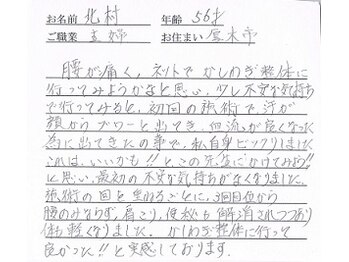 お名前 北村 年齢 56才
ご職業 主婦 お住まい 厚木市
腰が痛く、ネットでかしのき整体に
行ってみようかなと思い、少し不安な気持ち
で行ってみると、初回の施術で、汗が
顔からブワーと出てき、血流が良くなった
為に出てきたの事で、私自身ビックリしました
これは、いいかも!!と、この先生にかけてみよう!!
と思い、最初の不安な気持ちがなくなりました。
施術の回を重ねるごとに、3回目位から
腰のみならず、肩こり、便秘も解消されつつあり
体も軽くなりました。かしのき整体に行って
良かった!!と実感しております。